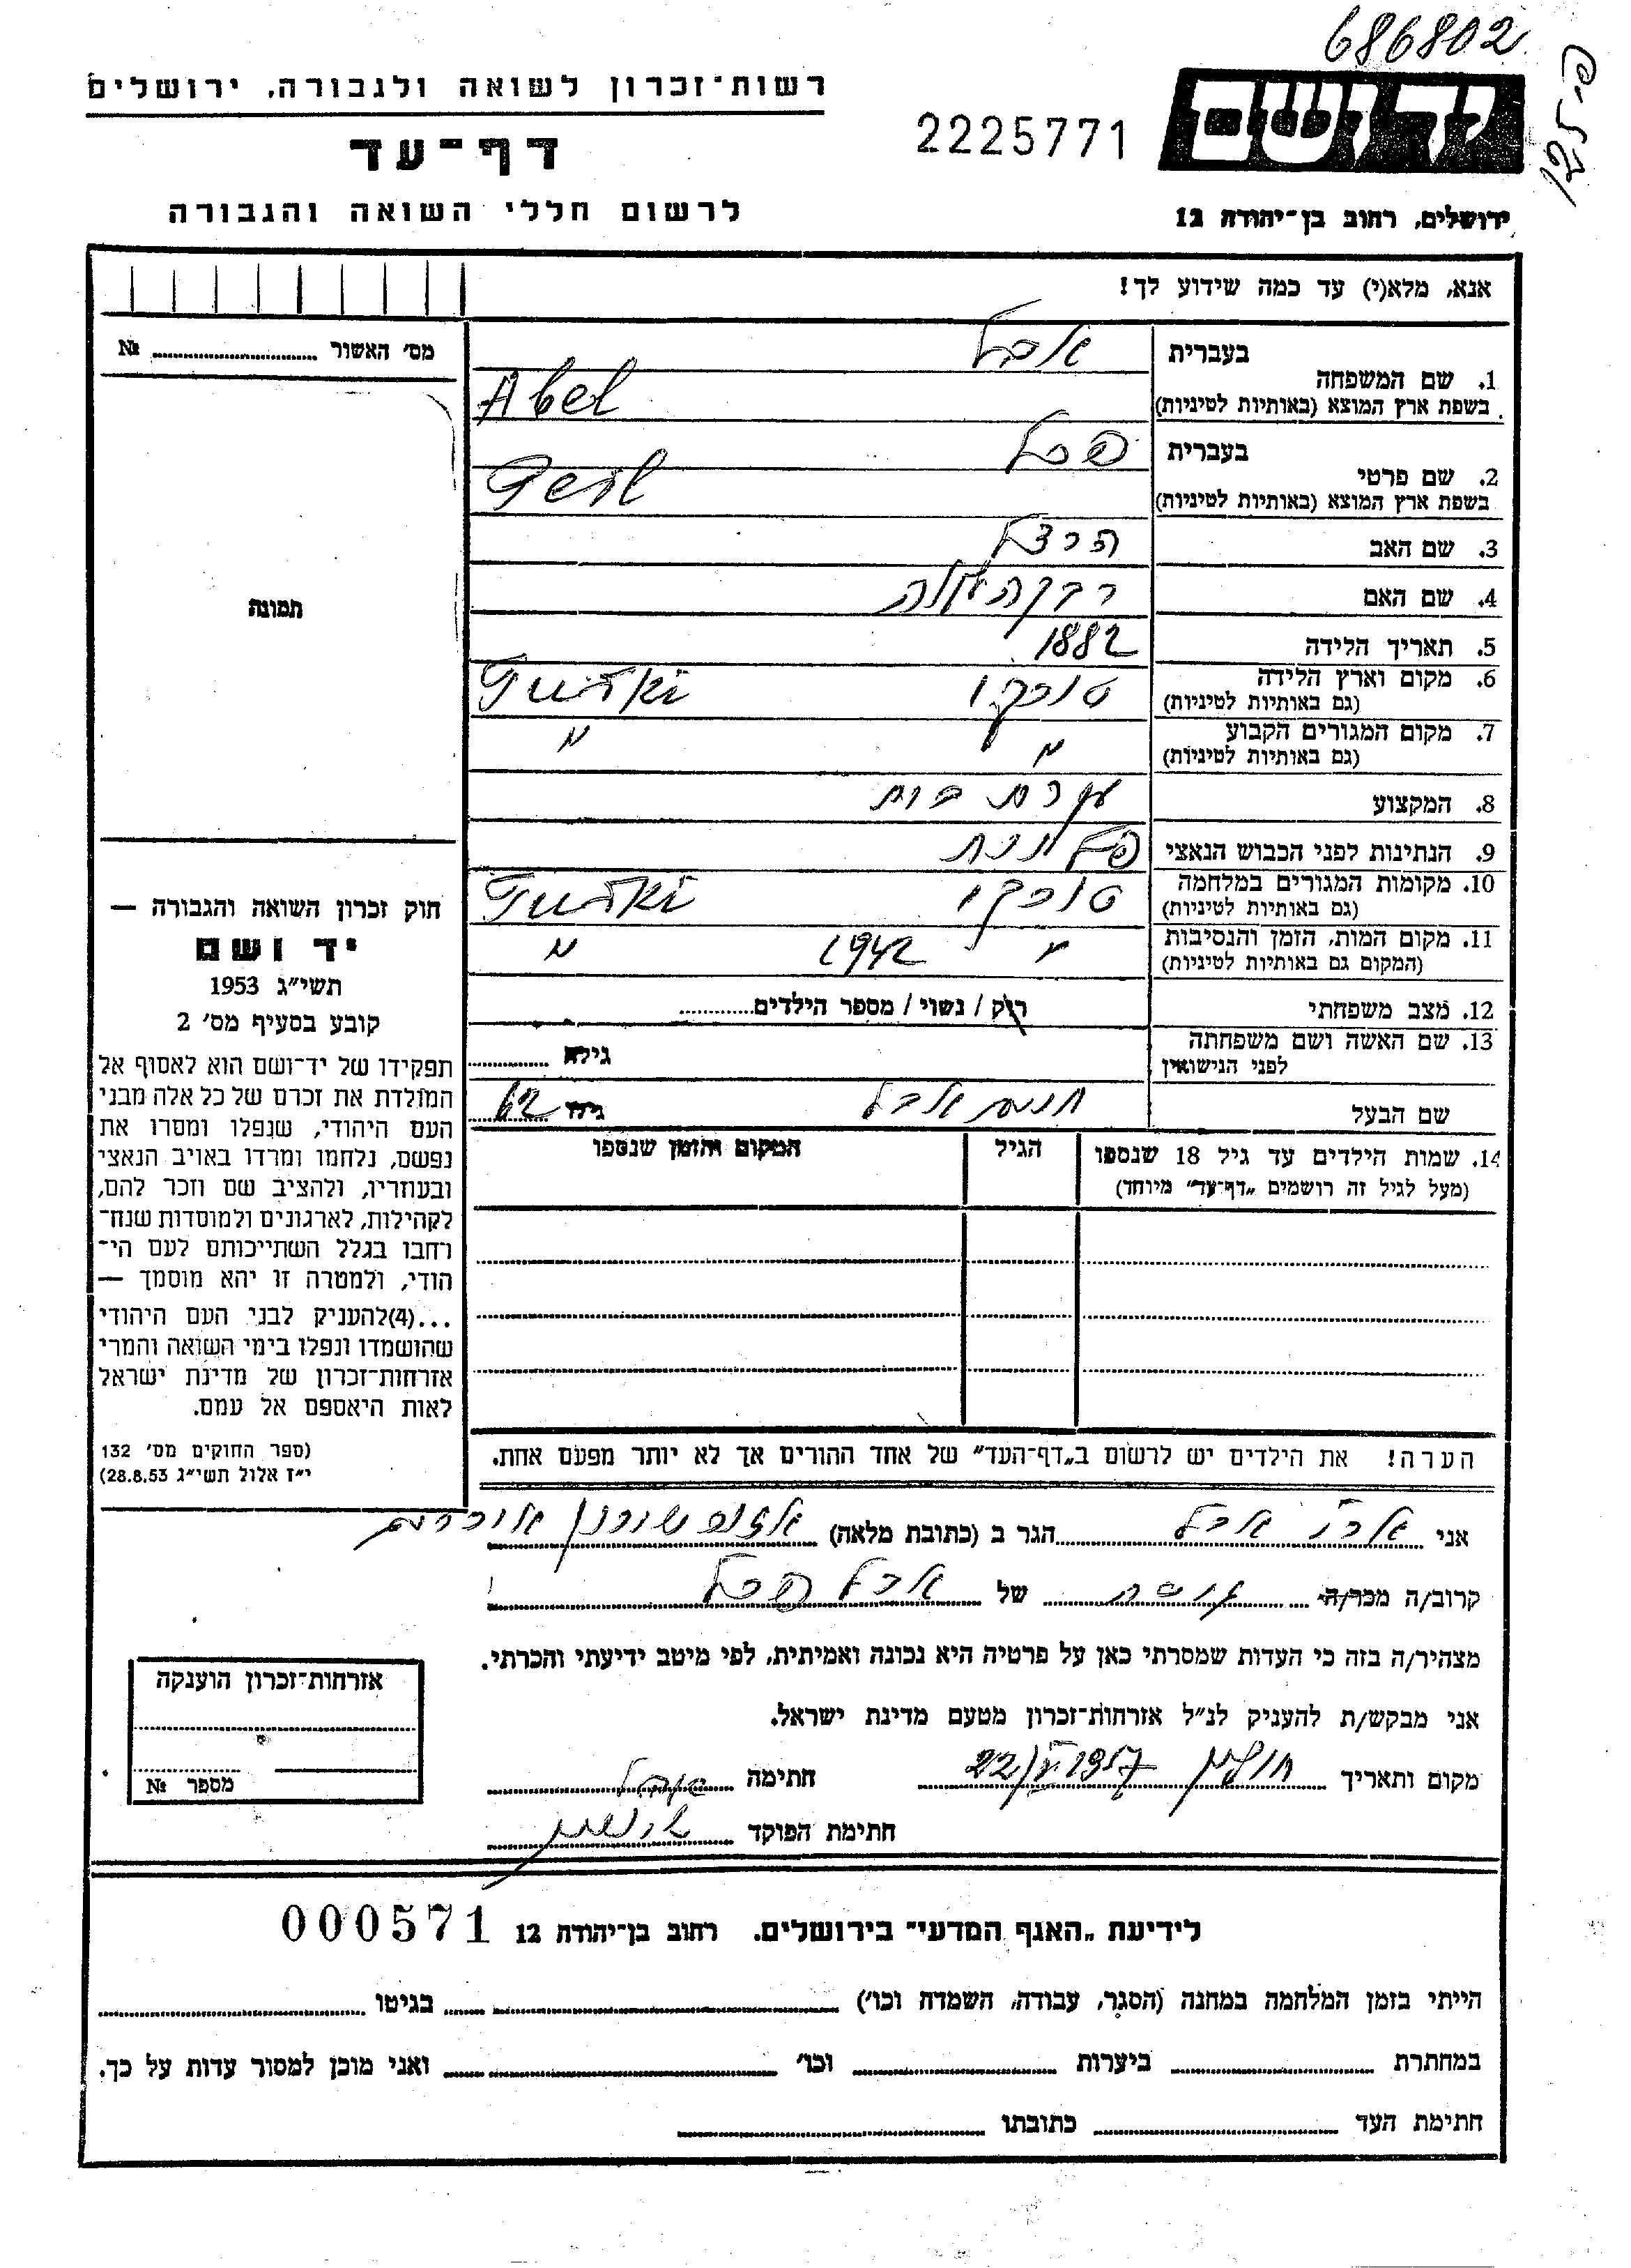 686802
125 פי
רשות־זכרון לשואה ולגבורה, ירושלים
דף־עד
לרשום חללי השואה והגבורה
2225771
יד ושם
ירושלים, רחוב בן־יהודה 12
אנא, מלא(י) עד כמה שידוע לך!
מס' האשור № 
תמונה
בעברית אבל
1. שם המשפחה
בשפת ארץ המוצא (באותיות לטיניות) Abel
בעברית פרל
2. שם פרטי
בשפת ארץ המוצא (באותיות לטיניות) Perl
3. שם האב הרצל
4. שם האם רבקה אלה
5. תאריך הלידה 1882
6. מקום וארץ הלידה טורקו Turkö
(גם באותיות לטיניות)
7. מקום המגורים הקבוע " "
(גם באותיות לטיניות)
8. המקצוע עקרת בית
9. הנתינות לפני הכבוש הנאצי פולנית
10. מקומות המגורים במלחמה טורקו Turkö
(גם באותיות לטיניות)
11. מקום המות, הזמן והנסיבות " 1942 "
(המקום גם באותיות לטיניות)
12. מצב משפחתי רוק / נשוי / מספר הילדים
13. שם האשה ושם משפחתה גילה
לפני הנישואין
שם הבעל אבל גילו 62
14. שמות הילדים עד גיל 18 שנספו הגיל המקום והזמן שנספו
(מעל לגיל זה רושמים „דף־עד" מיוחד)
הערה! את הילדים יש לרשום ב„דף־העד" של אחד ההורים אך לא יותר מפעם אחת.
חוק זכרון השואה והגבורה —
יד ושם
תשי"ג 1953
קובע בסעיף מס' 2
תפקידו של יד־ושם הוא לאסוף אל
המולדת את זכרם של כל אלה מבני
העם היהודי, שנפלו ומסרו את
נפשם, נלחמו ומרדו באויב הנאצי
ובעוזריו, ולהציב שם וזכר להם,
לקהילות, לארגונים ולמוסדות שנח־
רחבו בגלל השתייכותם לעם הי־
הודי, ולמטרה זו יהא מוסמך —
...(4)להעניק לבני העם היהודי
שהושמדו ונפלו בימי השואה והמרי
אזרחות־זכרון של מדינת ישראל
לאות היאספם אל עמם.
(ספר החוקים מס' 132
י"ז אלול תשי"ג 28.8.53)
אני אבל הגר ב (כתובת מלאה) שוכון
קרוב/ה מכר/ה של אבל פרל
מצהיר/ה בזה כי העדות שמסרתי כאן על פרטיה היא נכונה ואמיתית, לפי מיטב ידיעתי והכרתי.
אני מבקש/ת להעניק לנ"ל אזרחות־זכרון מטעם מדינת ישראל.
מקום ותאריך 1957 22 חתימה
חתימת הפוקד
אזרחות־זכרון הוענקה
מספר №
לידיעת „האגף המדעי" בירושלים. רחוב בן־יהודה 12 000571
הייתי בזמן המלחמה במחנה (הסגר, עבודה, השמדה וכו') בגיטו
במחתרת ביערות וכו' ואני מוכן למסור עדות על כך.
חתימת העד כתובתו